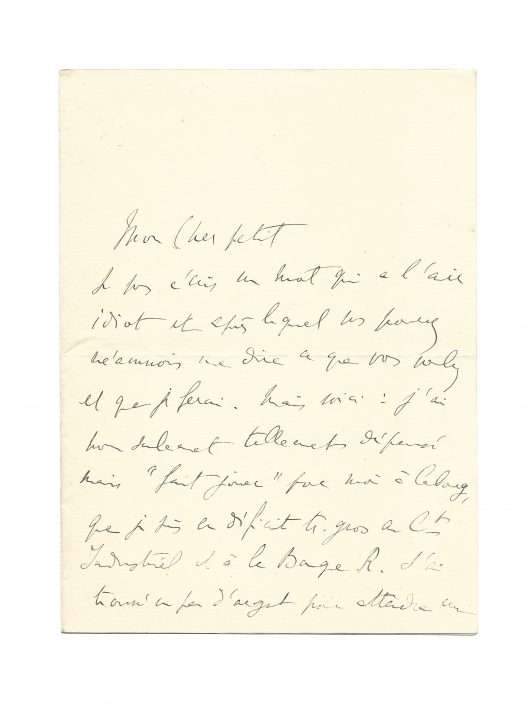 Mon cher petit
Je vous écris un mot qui a l'air
idiot et après lequel vs pouvez
néanmoins me dire ce que vous voulez
et que je ferai. Mais voici : j'ai
non seulement tellement dépensé
mais "fait jouer" pour moi à Cabourg,
que je suis en déficit tr. gros au Ct
Industriel et à la Banque R. J'ai
trouvé un peu d'argent pour attendre un